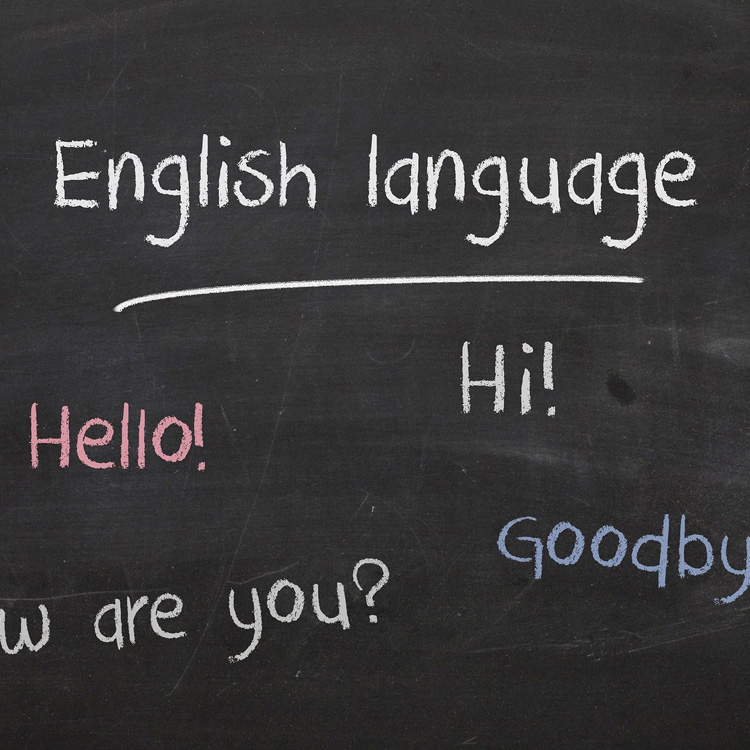 English language
Hi!
Hello!
Goodby
w are you?